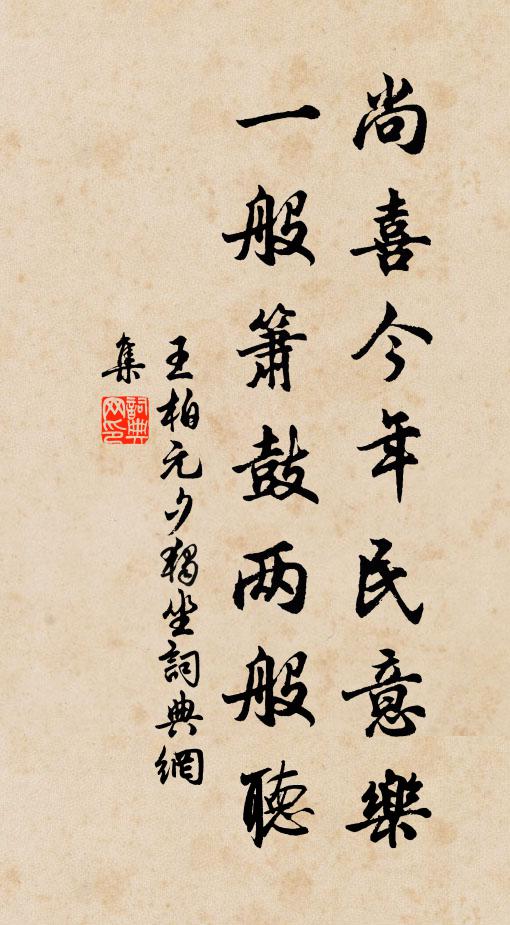 尚喜今年民意樂
一般簫鼓两般聽
王柏元夕独坐詞典網
集
詞典
网印